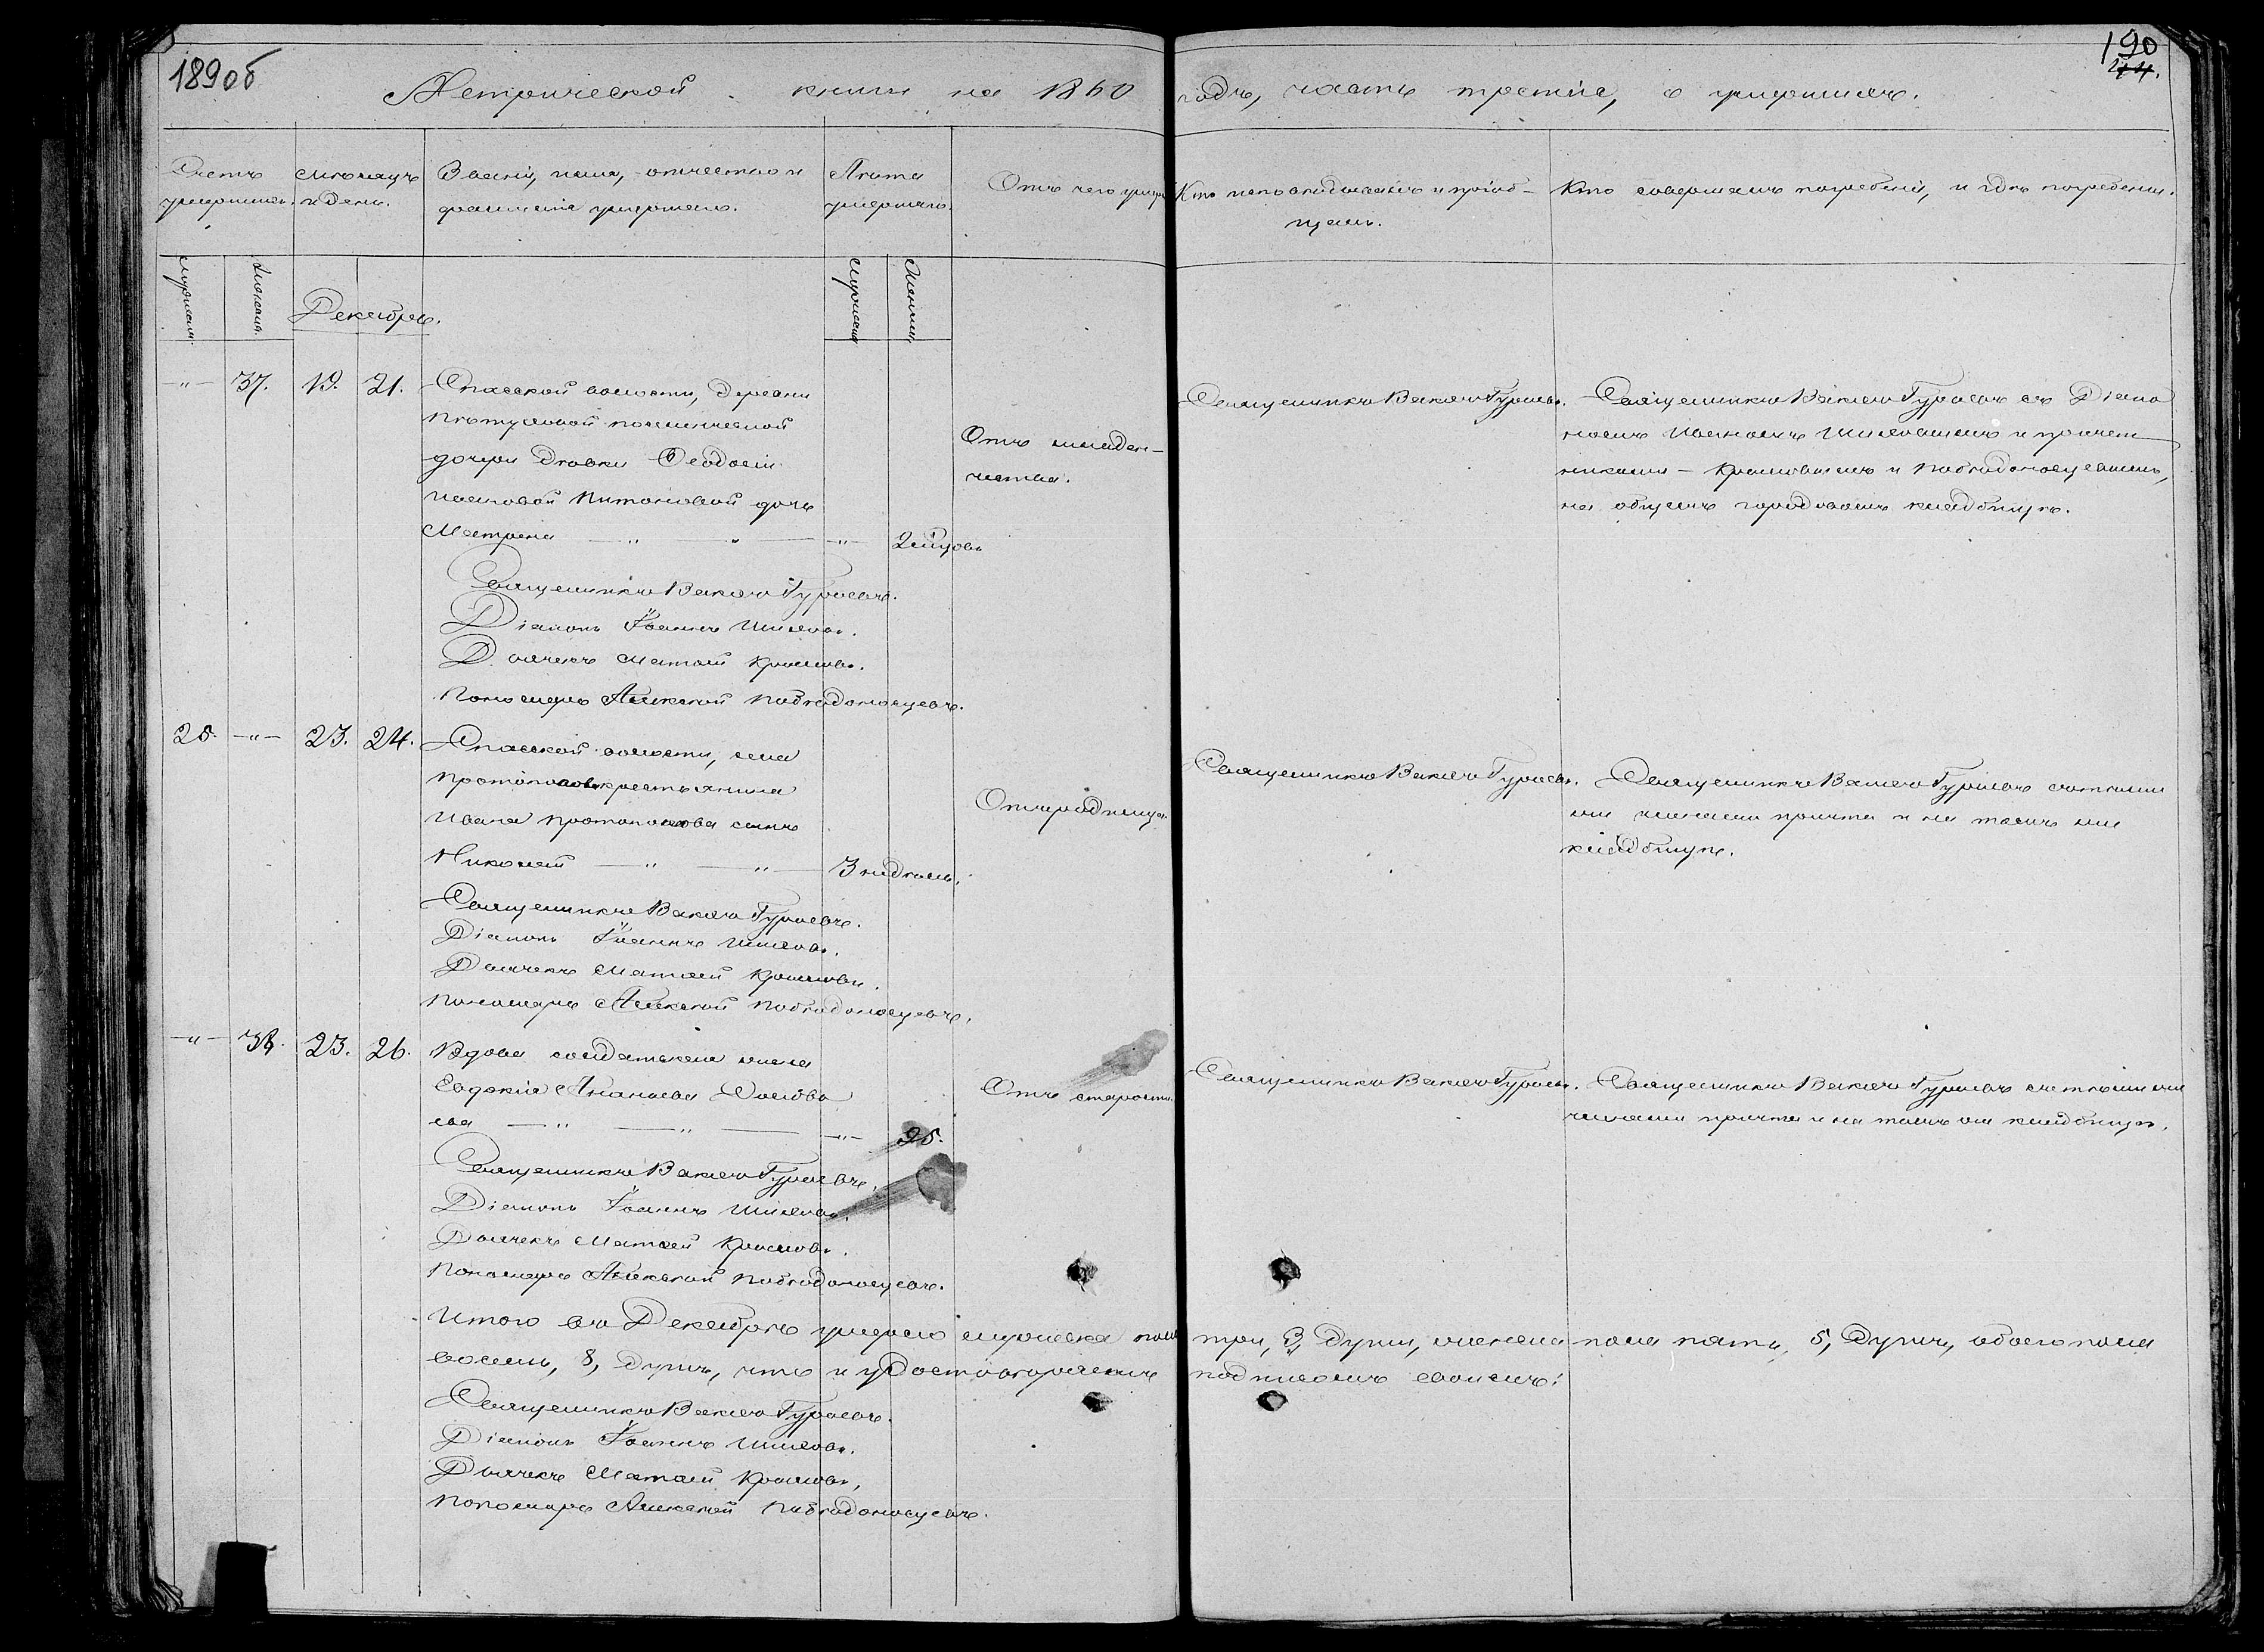 189об
190
44.
Метрической книги на 1860 годъ, часть третія, о умершихъ.
Счетъ умершихъ.
Мѣсяцъ и день.
Званіе, имя, отчество и фамилія умершаго.
Лѣта умершаго.
Отъ чего умеръ
Кто исповѣдывалъ и пріобщалъ.
Кто совершалъ погребеніе, и гдѣ погребены.
Мужеска.
Женска.
Декабрь.
Мужеска
Женска.
-"- 37. 19. 21.
Спасской волости, деревни
Пѣтуховой поселенческой
дочери дѣвки Ѳеодосіи
Антоновой дочь
Матрена - " - " - -"- 2 мѣсяцовъ
Отъ младен-
чества.
Священникъ Вакхъ Гурьевъ.
Священникъ Вакхъ Гурьевъ съ Діако
номъ Иваномъ Шиловымъ и причет
никами - Крыловымъ и Побѣдоносцевымъ,
на общемъ городовомъ кладбищѣ.
Священникъ Вакхъ Гурьевъ.
Діаконъ Іоаннъ Шиловъ.
Дьячекъ Матѳей Крыловъ.
Пономарь Алексей Побѣдоносцевъ.
25. -"- 23. 24.
Спасской волости, села
Протопопова крестьянина
Ивана Протопопова сынъ
Николай - " - " - 3 недѣль.
Отъ родимца.
Священникъ Вакхъ Гурьевъ.
Священникъ Вакхъ Гурьевъ съ тѣми
же членами причта и на томъ же
кладбищѣ.
Священникъ Вакхъ Гурьевъ.
Діаконъ Іоаннъ Шиловъ.
Дьячекъ Матѳей Крыловъ.
Пономарь Алексей Побѣдоносцевъ.
-"- 38. 23. 26.
Вдова солдатская жена
Евдокія Ананьева
ева - " - " - -"- 95.
Отъ старости.
Священникъ Вакхъ Гурьевъ.
Священникъ Вакхъ Гурьевъ съ тѣми же
членами причта и на томъ же кладбищѣ.
Священникъ Вакхъ Гурьевъ.
Діаконъ Іоаннъ Шиловъ.
Дьячекъ Матѳей Крыловъ.
Пономарь Алексей Побѣдоносцевъ.
Итого въ Декабрѣ умерло мужеска пола три, 3, души, женска пола пять, 5, душъ, обоего пола
восемь, 8, душъ, что и удостовѣряемъ подписомъ своимъ:
Священникъ Вакхъ Гурьевъ.
Діаконъ Іоаннъ Шиловъ.
Дьячекъ Матѳей Крыловъ,
Пономарь Алексей Побѣдоносцевъ.